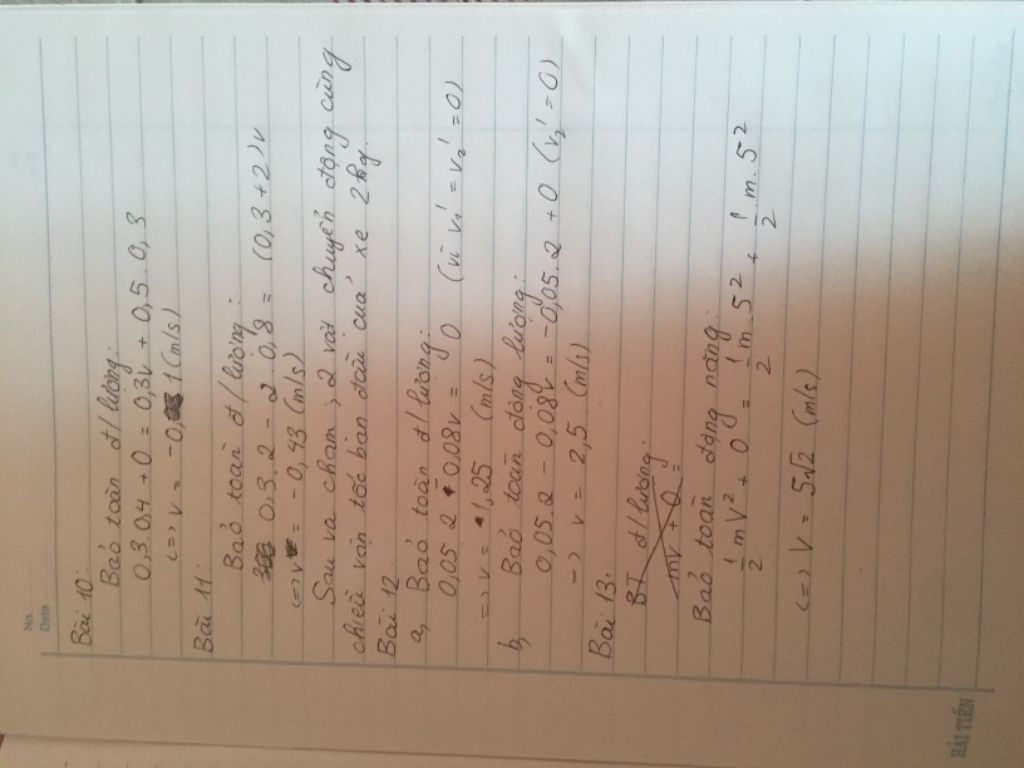 No. ............
Date ............
Bài 10:
Bảo toàn đ/lượng:
0,3.0,4 + 0 = 0,3v + 0,5.0,3
<=> v = -0,1 (m/s)
Bài 11:
Bảo toàn đ/lượng:
0,3.2 - 2.0,8 = (0,3+2)v
<=> v = -0,43 (m/s)
Sau va chạm, 2 vật chuyển động cùng
chiều vận tốc ban đầu của xe 2kg.
Bài 12.
a, Bảo toàn đ/lượng:
0,05.2 - 0,08v = 0 (vì v₁' = v₂' = 0)
=> v = 1,25 (m/s)
b, Bảo toàn động lượng:
0,05.2 - 0,08v = -0,05.2 + 0 (v₂' = 0)
=> v = 2,5 (m/s)
Bài 13:
BT đ/lượng:
mv + 0 =
Bảo toàn động năng:
1/2 mV² + 0 = 1/2 m.5² + 1/2 m.5²
<=> V = 5√2 (m/s)
HẢI TIẾN